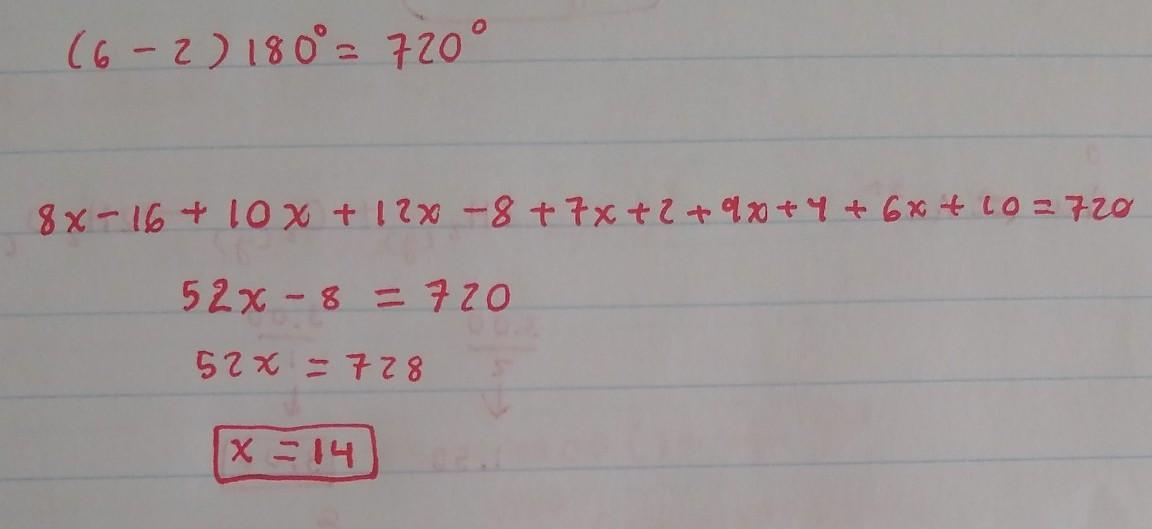 (6 - 2) 180° = 720°
8x - 16 + 10x + 12x - 8 + 7x + 2 + 9x + 4 + 6x + 10 = 720
52x - 8 = 720
52x = 728
x = 14